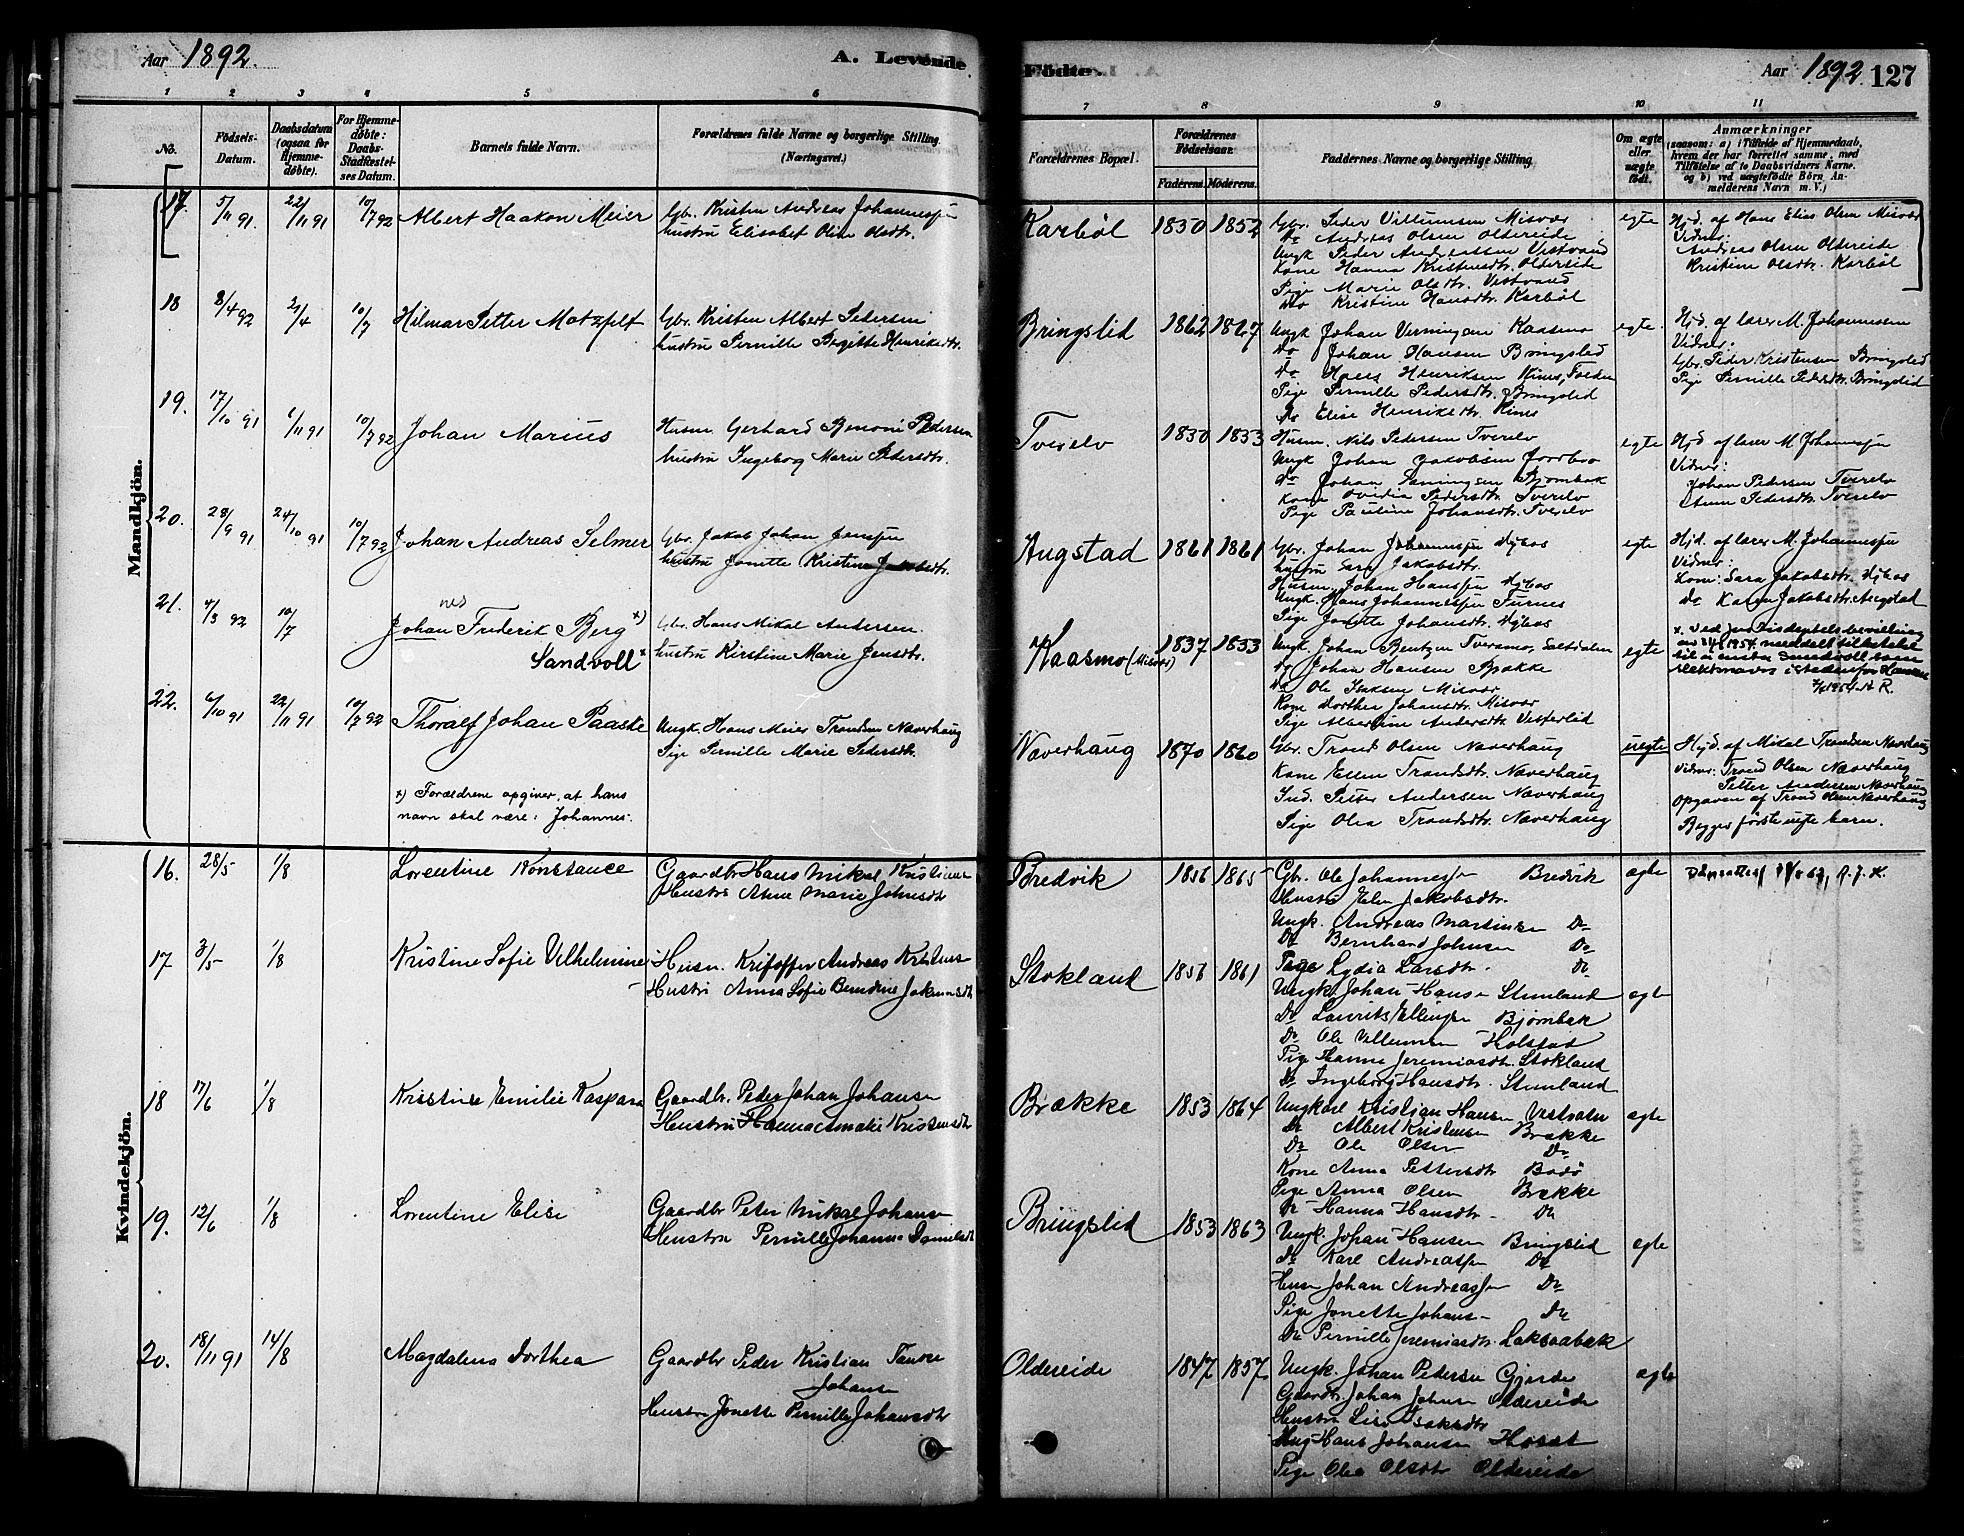 Aar 1892.
A. Levende Fødte.
Aar 1892
127
1 2 3 4 5 6 7 8 9 10 11
No.
Fødsels-Datum.
Daabsdatum (ogsaa for Hjemmedøbte).
For Hjemmedøbte: Daabs-Stadfæstelses Datum.
Barnets fulde Navn.
Forældrenes fulde Navne og borgerlige Stilling. (Næringsvei.)
Forældrenes Bopæl.
Forældrenes Fødselsaar.
Faderens. Moderens.
Faddernes Navne og borgerlige Stilling.
Om ægte eller uægte født.
Anmærkninger
(saasom: a) i Tilfælde af Hjemmedaab, hvem der har forrettet samme, med Tilføielse af to Daabsvidners Navne, og b) ved uægtefødte Børn, Anmelderens Navn m. V.)
Mandkjön.
17. 5/11 91 22/11 91 10/7 92 Albert Haakon Meier
Gbr. Kristen Andreas Johannessen
hustru Elisabet Oline Olsdtr.
Karbøl 1850 1852
Gbr. Peder Villumsen Misvær
Do Andreas Olsen Oldereide
Ungk Peder Andreassen Vestvand
Kone Hanna Kristensdtr. Oldereide
Pige Marie Olsdtr. Vestvand
Do Kristine Hansdtr. Karbøl
egte
Hjd. af Hans Elias Olsen Misvær
Vidner:
Andreas Olsen Oldereide
Kristine Olsdtr. Karbøl
18 8/4 92 2/4 10/7 Hilmar Petter Motzfelt
Gbr. Kristen Albert Pedersen
hustru Pernille Birgitte Henriksdtr.
Bringslid 1862 1867
Ungk Johan Kaasmo
Do Johan Hansen Bringslid
Do Hans Henriksen
Pige Pernille Pedersdtr. Bringslid
Do Elise Henriksdtr.
egte.
Hjd. af lærer M. Johannessen
Vidner:
Gbr. Peder Kristensen Bringslid
Pige Pernille Pedersdtr. Bringslid
19. 17/10 91 1/11 91 10/7 92 Johan Marius
Husm Gerhard Benoni Pedersen
hustru Ingeborg Marie Pedersdtr.
Tverelv 1830 1833
Husm. Nils Pedersen Tverelv
Ungk Johan Jakobsen
Do Johan Bjørnbak
Kone Ovidia Pedersdtr. Tverelv
Pige Pauline Johansdtr. Tverelv
egte
Hjd. af lærer M. Johannessen
Vidner:
Johan Pedersen Tverelv
Anne Pedersdtr. Tverelv
20. 28/9 91 24/10 91 10/7 92 Johan Andreas Selmer
Gbr. Jakob Johan Jenssen
hustru Jonette Kristine Jakobsdtr.
Augstad 1861 1861
Gbr. Johan Johannessen
hustru Sara Jakobsdtr.
Husm Johan Hanssen
Ungk. Hans Johannessen Furnes
Pige Jonette Johansdtr.
egte
Hjd. af lærer M. Johannessen
Vidner:
Kone: Sara Jakobsdtr.
Do Karen Jakobsdtr. Augstad
21. 4/3 92 10/7
nes
Johan Frederik Berg x)
Sandvoll x
Gbr. Hans Mikal Andersen
hustru Kirstine Marie Jensdtr.
Kaasmo (Misvær) 1837 1853
Ungk. Johan Bentzen Tveraamo, Saltdalen
Do Johan Hansen Brække
Do Ole Isaksen Misvær
Kone Dorthea Johansdtr. Misvær
Pige Albertine Andersdtr. Vesterlid
egte
x. Ved Justisdeptets bevilling
1954 meddelt tillatelse
til å anta Sandvoll som
slektsnavn istedenfor Hansen
22. 6/10 91 22/11 91 10/7 92 Thoralf Johan Paaske
Ungk. Hans Meier Trondsen Naverhaug
Pige Pernille Marie Pedersdtr.
x) Forældrene opgiver, at hans
navn skal være: Johannes.
Naverhaug 1870 1860
Gbr. Trond Olsen Naverhaug
Kone Ellen Trondsdtr. Naverhaug
Ind. Petter Andersen Naverhaug
Pige Olea Trondsdtr. Naverhaug
uegte
Hjd. af Mikal Trondsen Naverhaug
Vidner: Trond Olsen Naverhaug
Petter Andersen Naverhaug
Opgaven af Trond Olsen Naverhaug
Begges første uegte barn.
Kvindekjön.
16. 28/5 1/8 Lorentine Konstance
Gaardbr Hans Mikal Kristians
Hustru Anne Marie Johnsdtr
Bredvik 1856 1865
Gbr. Ole Johannessen Bredvik
Hustru Elen Jakobsdtr.
Ungk. Andreas Martinsen Do
Do Bernhard Johnsen Do
Pige Lydia Larsdtr. Do
ægte
17 3/5 1/8 Kristine Sofie Vilhelmine
Husm. Kristoffer Andreas Kristens
Hustru Anna Sofie Berndine Johannsdtr
Stokland 1856 1861
Ungk Johan Hansen Stemland
Do Laurits Ellingsen Bjørnbak
Do Ole Villumsen Holstad
Pige Hanna Jeremiasdtr. Stokland
Do Ingeborg Hansdtr. Stemland
ægte
18 17/6 1/8 Kristine Emilie Kaspara
Gaardbr. Peder Johan Johansen
Hustru Hanna Amalie Kristensdtr
Brække 1853 1864
Ungkarl Kristian Hansen Vestvatn
Do Albert Kristensen Brække
Do Ole Olsen Do
Kone Anna Pettersdtr Bodø
Pige Anna Olsen Brække
Do Hanna Hansdtr. Do
ægte
19. 12/6 1/8 Lorentine Elise
Gaardbr Peter Mikal Johansen
Hustru Pernille Johanna Danielsdtr
Bringslid 1853 1863
Ungk. Johan Hansen Bringslid
Do Karl Andreassen Do
Husm Johan Andreassen Do
Pige Jonette Johans Do
Do Pernille Jeremiasdtr. Laksaabak
ægte
20. 18/11 91 14/8 Magdalena Dorthea
Gaardbr Peder Kristian Tanke
Johansen
Hustru Jonette Pernille Johansdtr
Oldereide 1847 1857
Ungk. Johan Pedersen Gjerde
Gaardbr. Johan Johnsen Oldereide
Hustru Lise Isaksdtr
Ungk Hans Johansen
Pige Olea Olsdtr Oldereide
ægte